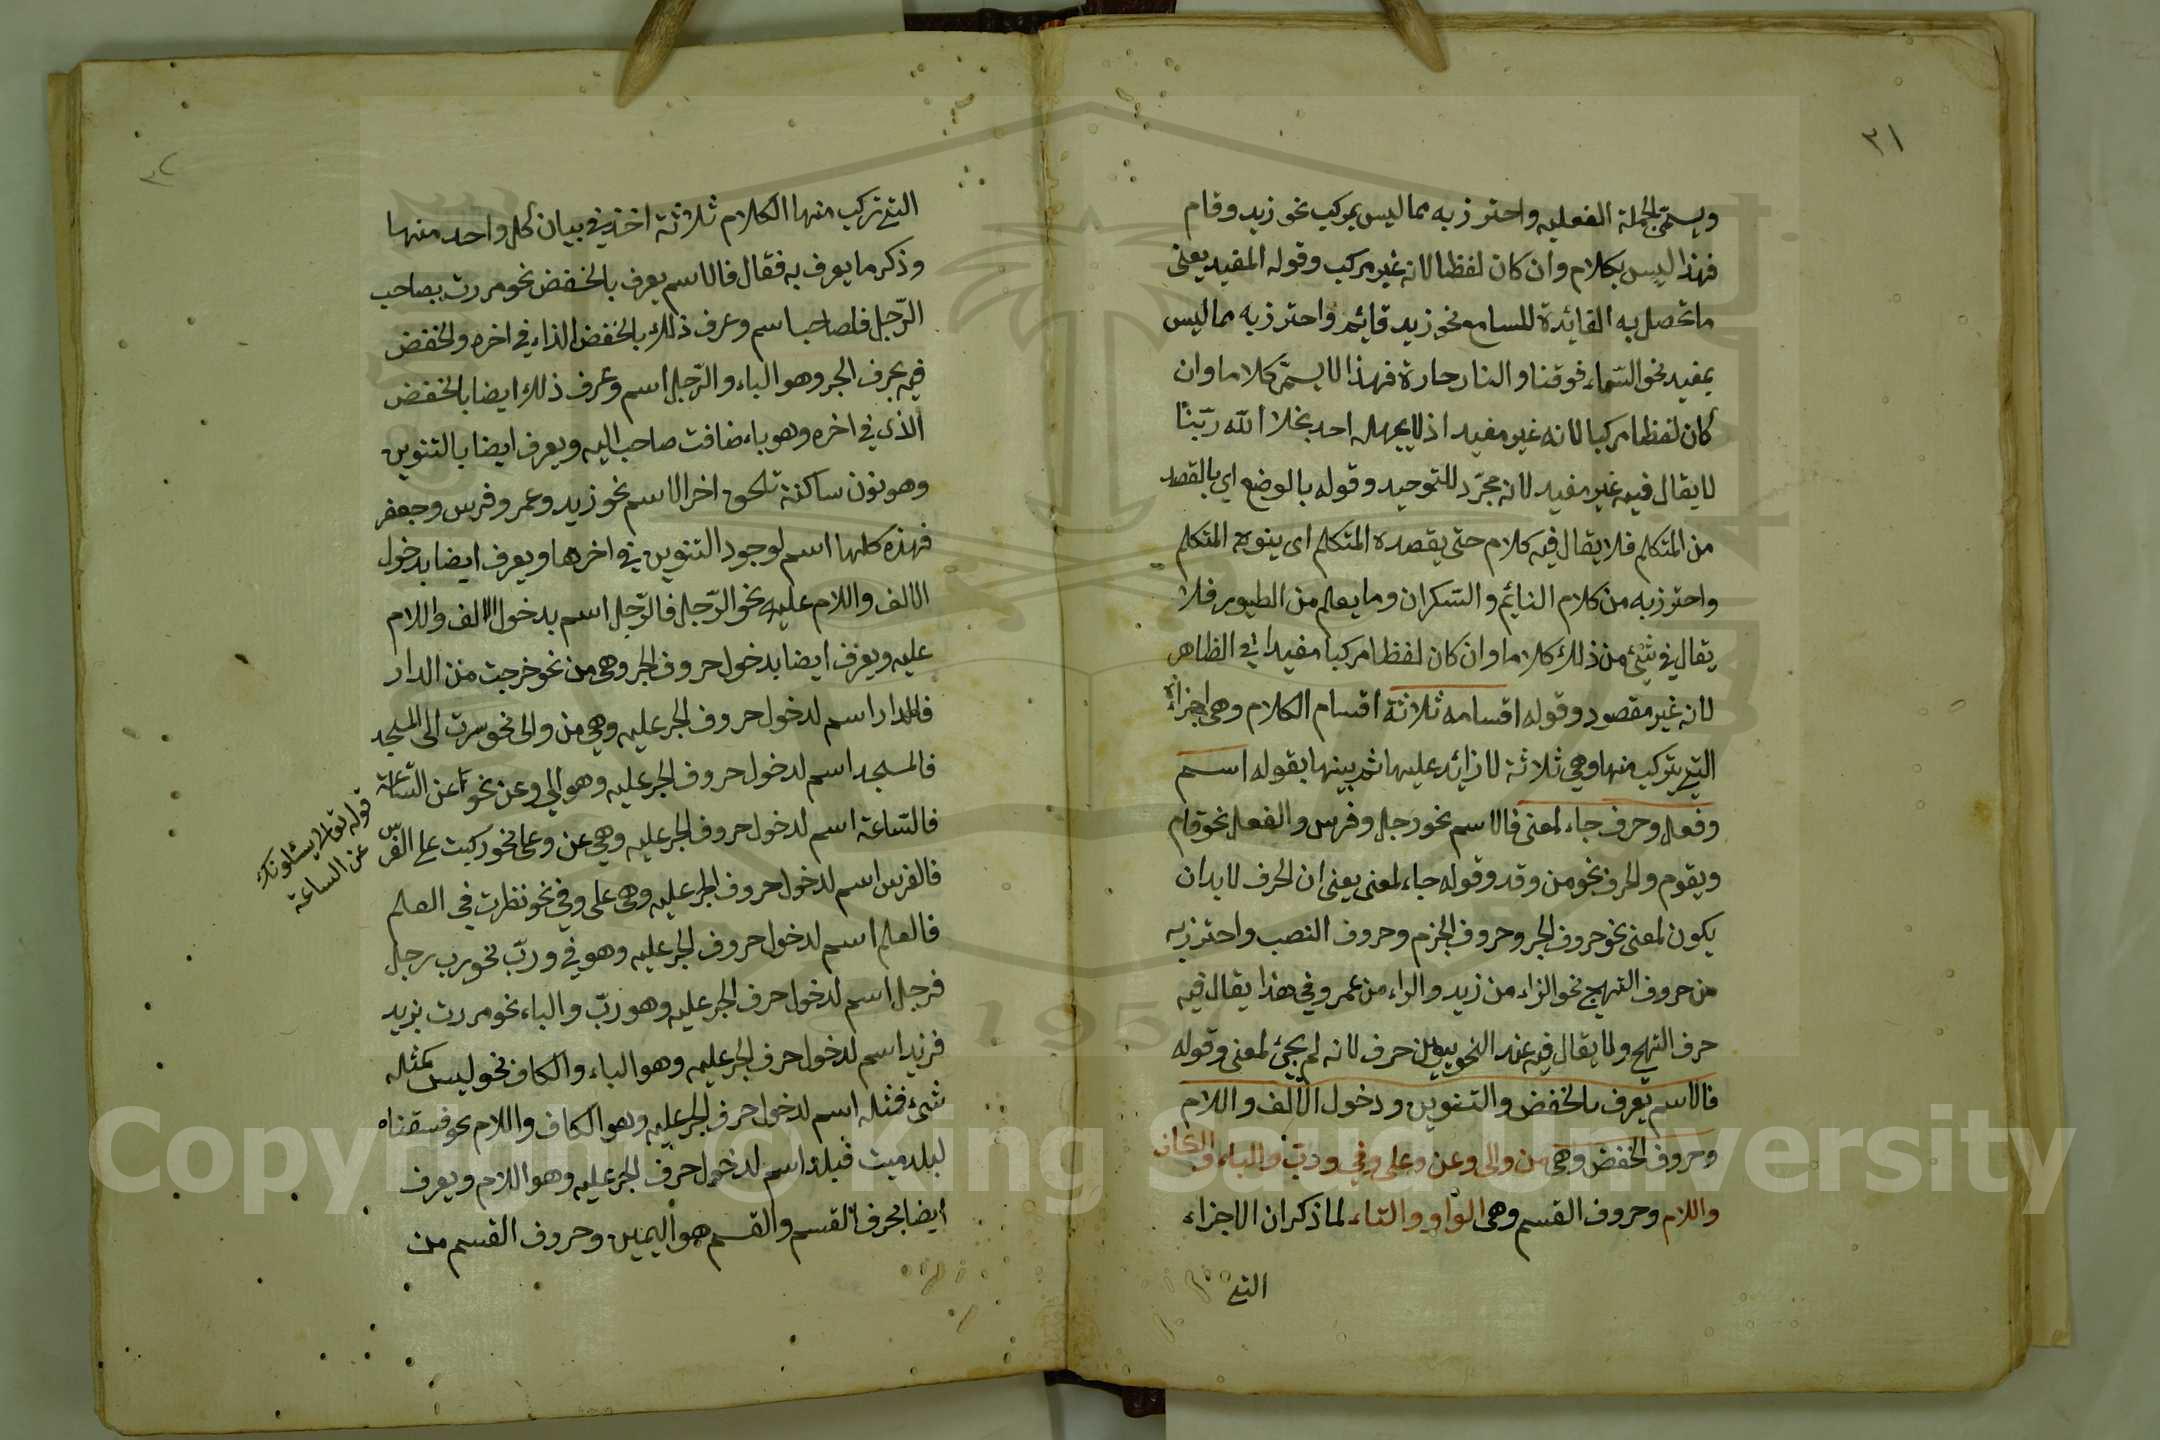 ٣١
ويسمى الجملة الفعليه واحترز به مما ليس بمركب نحو زيد وقام
فهذا ليس بكلام وان كان لفظا لانه غير مركب وقوله المفيد يعنى
ما تحصل به الفائدة للسامع نحو زيد قائم واحترز به مما ليس
بمفيد نحو السّماء فوقنا والنار حارة فهذا لا يسمّى كلاما وان
كان لفظا مركبا لانه غير مفيد اذ لا يجهله احد بخلا الله ربّنا
لا يقال فيه غير مفيد لانه مجرّد للتوحيد وقوله بالوضع اي بالقصد
من المتكلم فلا يقال فيه كلام حتى يقصده المتكلم اى ينويه المتكلم
واحترز به من كلام النايم والسّكران وما يعلم من الطيور فلا
يقال في شئ من ذلك كلاما وان كان لفظا مركبا مفيدا في الظاهر
لانه غير مقصود وقوله اقسامه ثلاثة اقسام الكلام وهى اجزاؤه
التي يتركب منها وهي ثلاثة لا زائد عليها ثم بينها بقوله اسم
وفعل وحرف جاء لمعنى فالاسم نحو رجل وفرس والفعل نحو قام
ويقوم والحرف نحو من وقد وقوله جاء لمعنى يعنى ان الحرف لا بد ان
يكون لمعنى نحو حروف الجر وحروف الجزم وحروف النصب واحترز به
من حروف التهج نحو الزاء من زيد والراء من عمرو في هذا يقال فيه
حرف التهج ولا يقال فيه عند النحويين حرف لانه لم يجئ لمعنى وقوله
فالاسم يعرف بالخفض والتنوين ودخول الالف واللام
وحروف الخفض وهى من والى وعن وعلى وفي وربّ والباء والكاف
واللام وحروف القسم وهى الواو والتاء لما ذكر ان الاجزاء
التي
٣٢
التي تركب منها الكلام ثلاثة اخذ في بيان كل واحد منها
وذكر ما يعرف به فقال فالاسم يعرف بالخفض نحو مررت بصاحب
الرّجل فلصاحب اسم وعرف ذلك بالخفض الذى في اخره والخفض
فيه بحرف الجر وهو الباء والرّجل اسم وعرف ذلك ايضا بالخفض
الذى في اخره وهو باء ضافت صاحب اليه ويعرف ايضا بالتنوين
وهو نون ساكنة تلحق اخر الاسم نحو زيد وعمر وفرس وجعفر
فهذه كلها اسم لوجود التنوين في اخرها ويعرف ايضا بدخول
الالف واللام عليه نحو الرّجل فالرّجل اسم بدخول الالف واللام
عليه ويعرف ايضا بدخول حروف الجر وهى من نحو خرجت من الدار
فالدار اسم لدخول حروف الجر عليه وهي من والى نحو سرت الى المسجد
فالمسجد اسم لدخول حروف الجر عليه وهو الي وعن نحو عن السّاعة
فالسّاعة اسم لدخول حروف الجر عليه وهي عن وعلى نحو ركبت على الفرس
فالفرس اسم لدخول حروف الجر عليه وهى على وفي نحو نظرت في العلم
فالعلم اسم لدخول حروف الجر عليه وهو في وربّ نحو رب رجل
فرجل اسم لدخول حرف الجر عليه وهو ربّ والباء نحو مررت بزيد
فزيد اسم لدخول حرف الجر عليه وهو الباء والكاف نحو ليس كمثله
شئ فمثله اسم لدخول حرف الجر عليه وهو الكاف واللام نحو فسقناه
لبلد ميت فبلد اسم لدخول حرف الجر عليه وهو اللام ويعرف
ايضا بحرف القسم والقسم هو اليمين وحروف القسم من
قوله تعالى يسئلونك
عن الساعة
Copyright © King Saud University
195